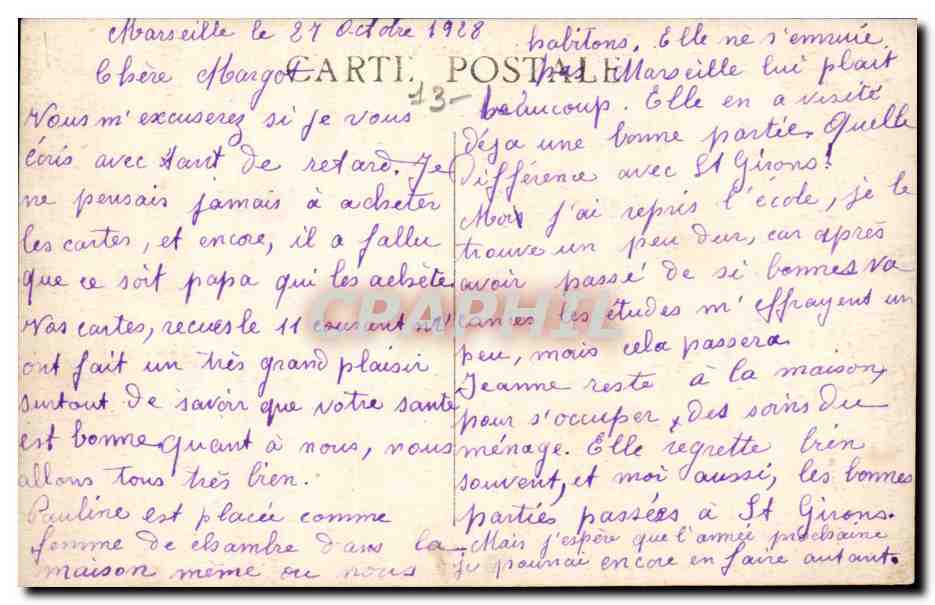 Marseille le 27 Octobre 1928
Chère Margot
CARTE POSTALE
13-
Vous m'excuserez si je vous
écris avec tant de retard. Je
ne pensais jamais à acheter
les cartes, et encore, il a fallu
que ce soit papa qui les achète.
Vos cartes, recues le 11 courant m'
ont fait un très grand plaisir
surtout de savoir que votre santé
est bonne. quant à nous, nous
allons tous très bien.
Pauline est placée comme
femme de chambre dans la
maison même ou nous
habitons. Elle ne s'ennuie
pas Marseille lui plait
beaucoup. Elle en a visité
déja une bonne partie. Quelle
différence avec St Girons!
Moi j'ai repris l'école, je le
trouve un peu dur, car après
avoir passé de si bonnes va
cances les études m'effrayent un
peu, mais cela passera
Jeanne reste à la maison,
pour s'occuper des soins du
ménage. Elle regrette bien
souvent, et moi aussi, les bonnes
parties passées à St Girons.
Mais j'espère que l'année prochaine
je pourrai encore en faire autant.
CRAPHIL